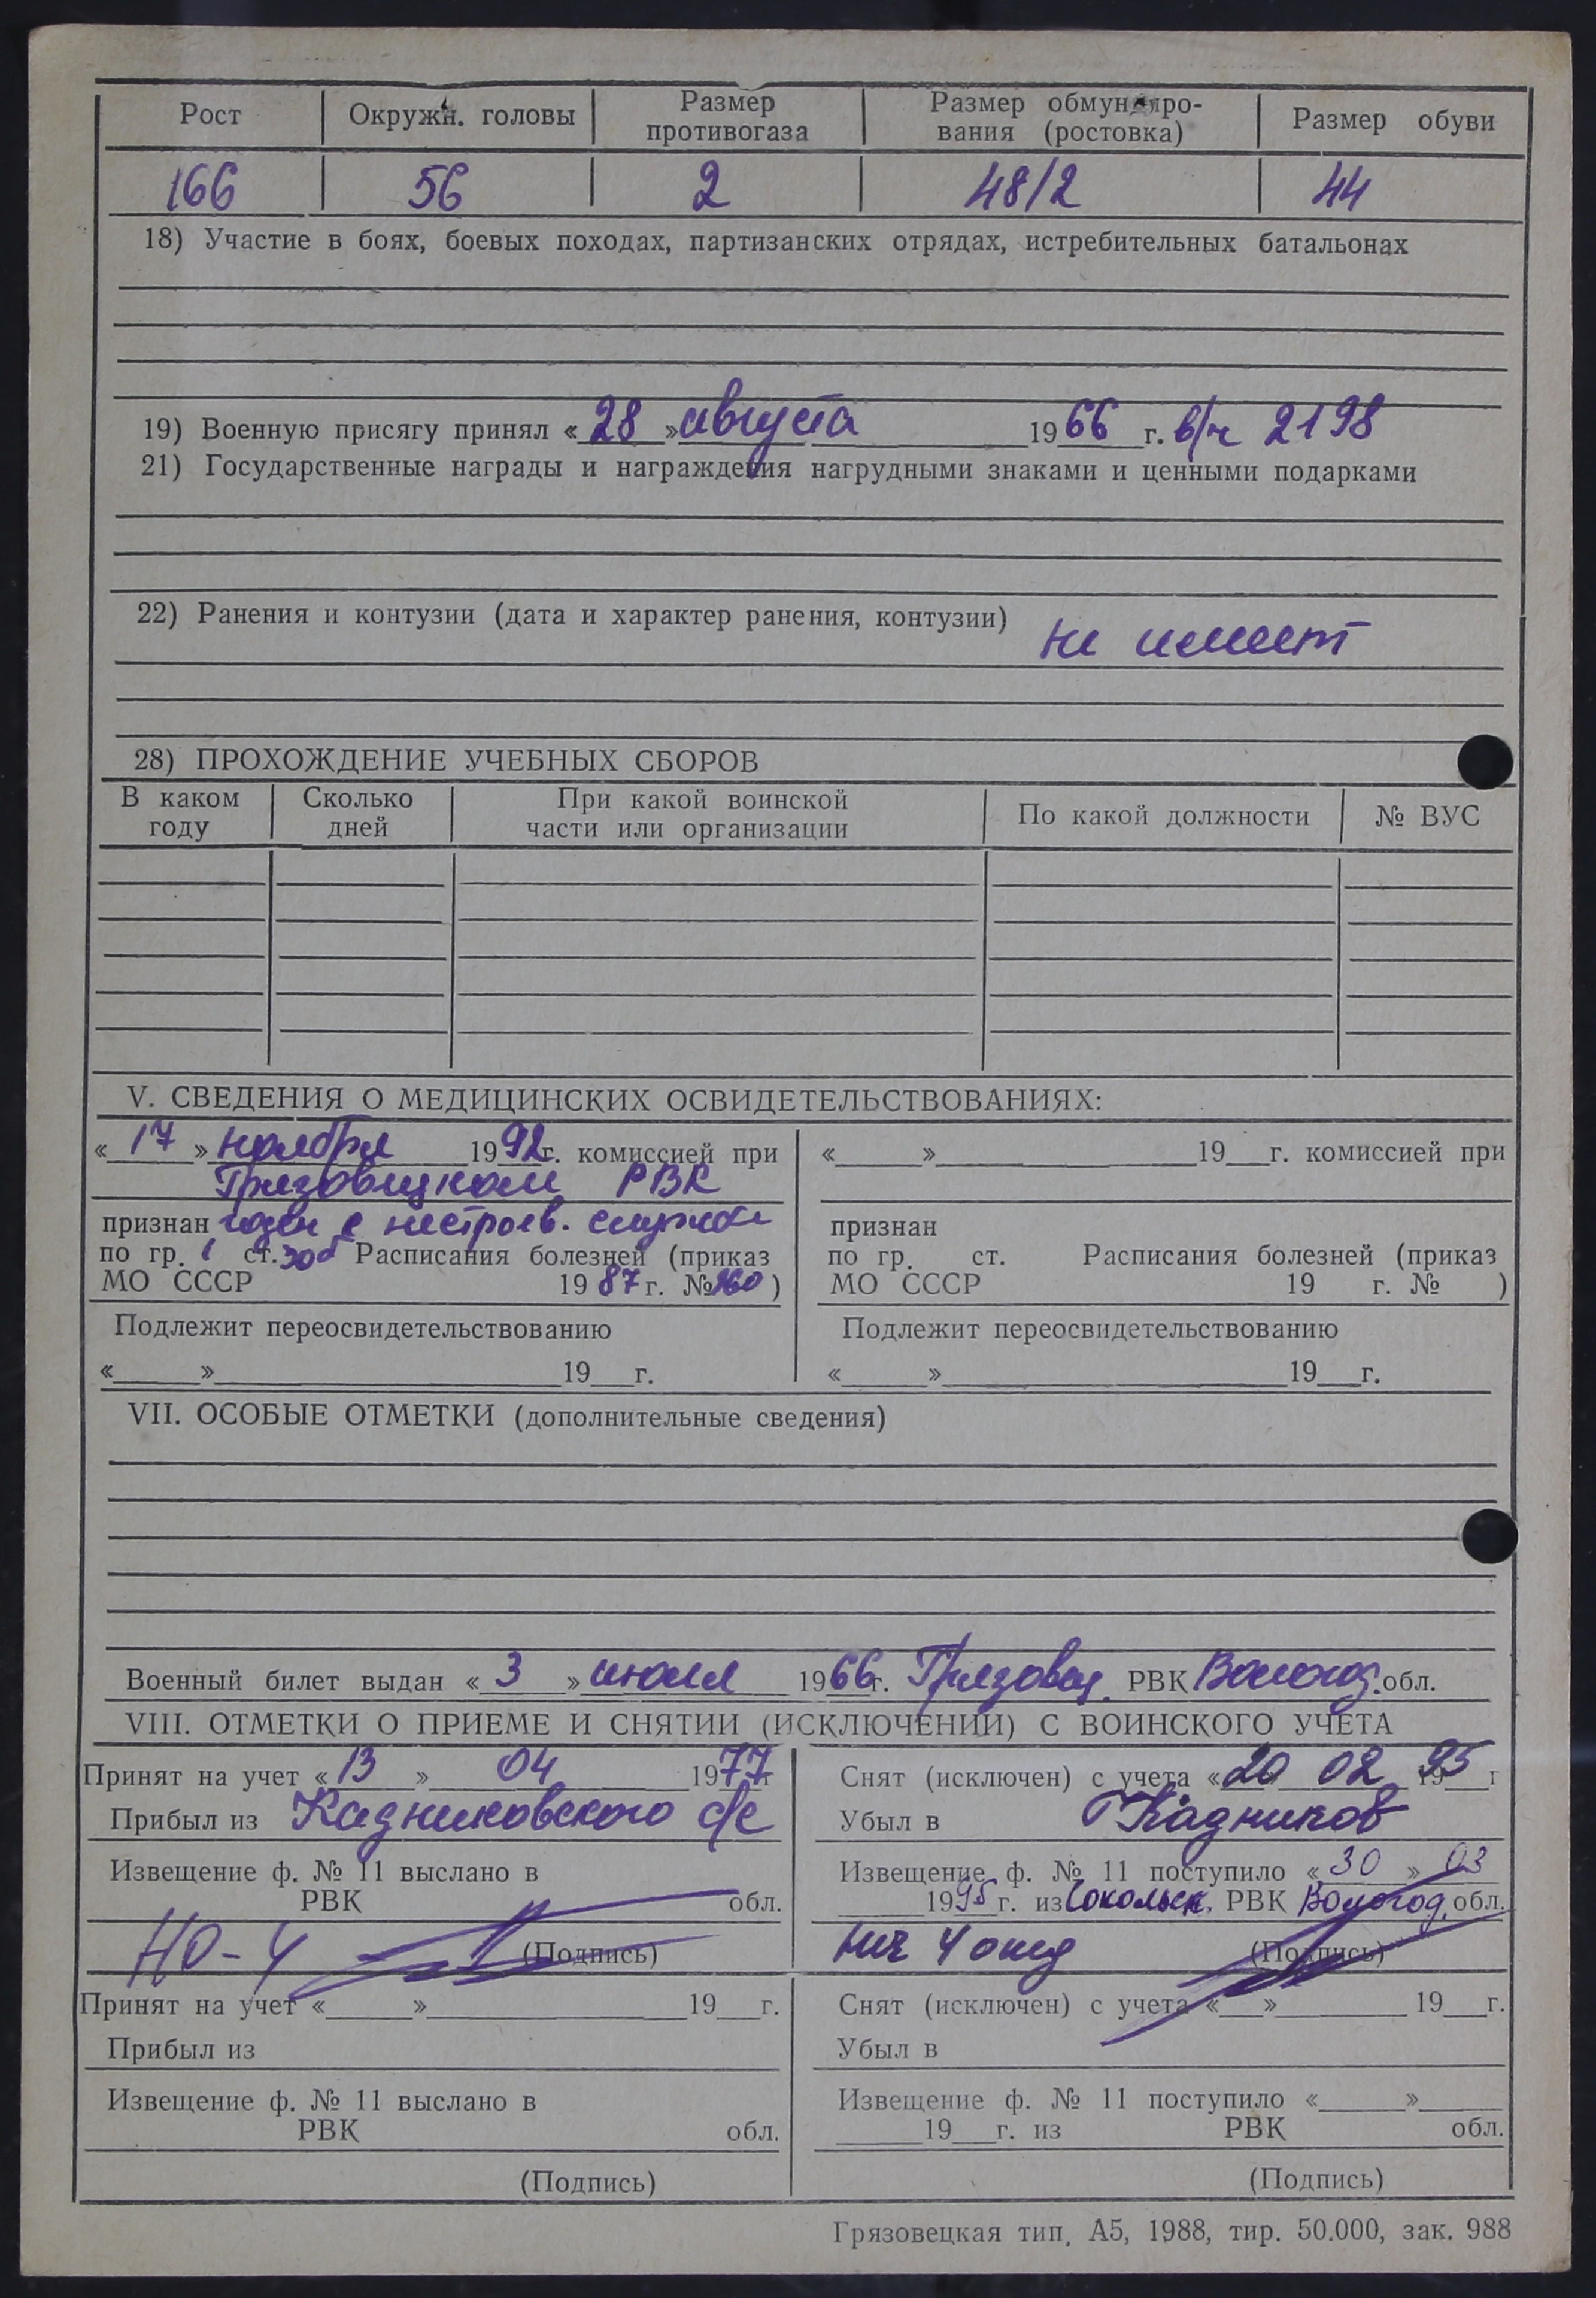 Рост Окружн. головы Размер противогаза Размер обмундиро-вания (ростовка) Размер обуви
166 56 2 48/2 44
18) Участие в боях, боевых походах, партизанских отрядах, истребительных батальонах
19) Военную присягу принял «28» августа 1966 г. в/ч 2198
21) Государственные награды и награждения нагрудными знаками и ценными подарками
22) Ранения и контузии (дата и характер ранения, контузии) не имеет
28) ПРОХОЖДЕНИЕ УЧЕБНЫХ СБОРОВ
В каком году Сколько дней При какой воинской части или организации По какой должности № ВУС
V. СВЕДЕНИЯ О МЕДИЦИНСКИХ ОСВИДЕТЕЛЬСТВОВАНИЯХ:
«17» ноября 1992г. комиссией при
Грязовецком РВК
признан годен к нестроев. службе
по гр. I ст. 30б Расписания болезней (приказ
МО СССР 1987 г. №260)
Подлежит переосвидетельствованию
« » 19 г.
« » 19 г. комиссией при
признан
по гр. ст. Расписания болезней (приказ
МО СССР 19 г. № )
Подлежит переосвидетельствованию
« » 19 г.
VII. ОСОБЫЕ ОТМЕТКИ (дополнительные сведения)
Военный билет выдан «3» июля 1966г. Грязовец. РВК Вологод. обл.
VIII. ОТМЕТКИ О ПРИЕМЕ И СНЯТИИ (ИСКЛЮЧЕНИИ) С ВОИНСКОГО УЧЕТА
Принят на учет «13» 04 1977г
Прибыл из Кадниковского с/с
Извещение ф. № 11 выслано в
РВК обл.
НО-4 (Подпись)
Снят (исключен) с учета «20 02 1995 г
Убыл в г Кадников
Извещение ф. № 11 поступило «30» 03
1995 г. из Сокольск. РВК Вологод. обл.
Нич 4 отд (Подпись)
Принят на учет « » 19 г.
Прибыл из
Извещение ф. № 11 выслано в
РВК обл.
(Подпись)
Снят (исключен) с учета « » 19 г.
Убыл в
Извещение ф. № 11 поступило « »
19 г. из РВК обл.
(Подпись)
Грязовецкая тип. А5, 1988, тир. 50.000, зак. 988